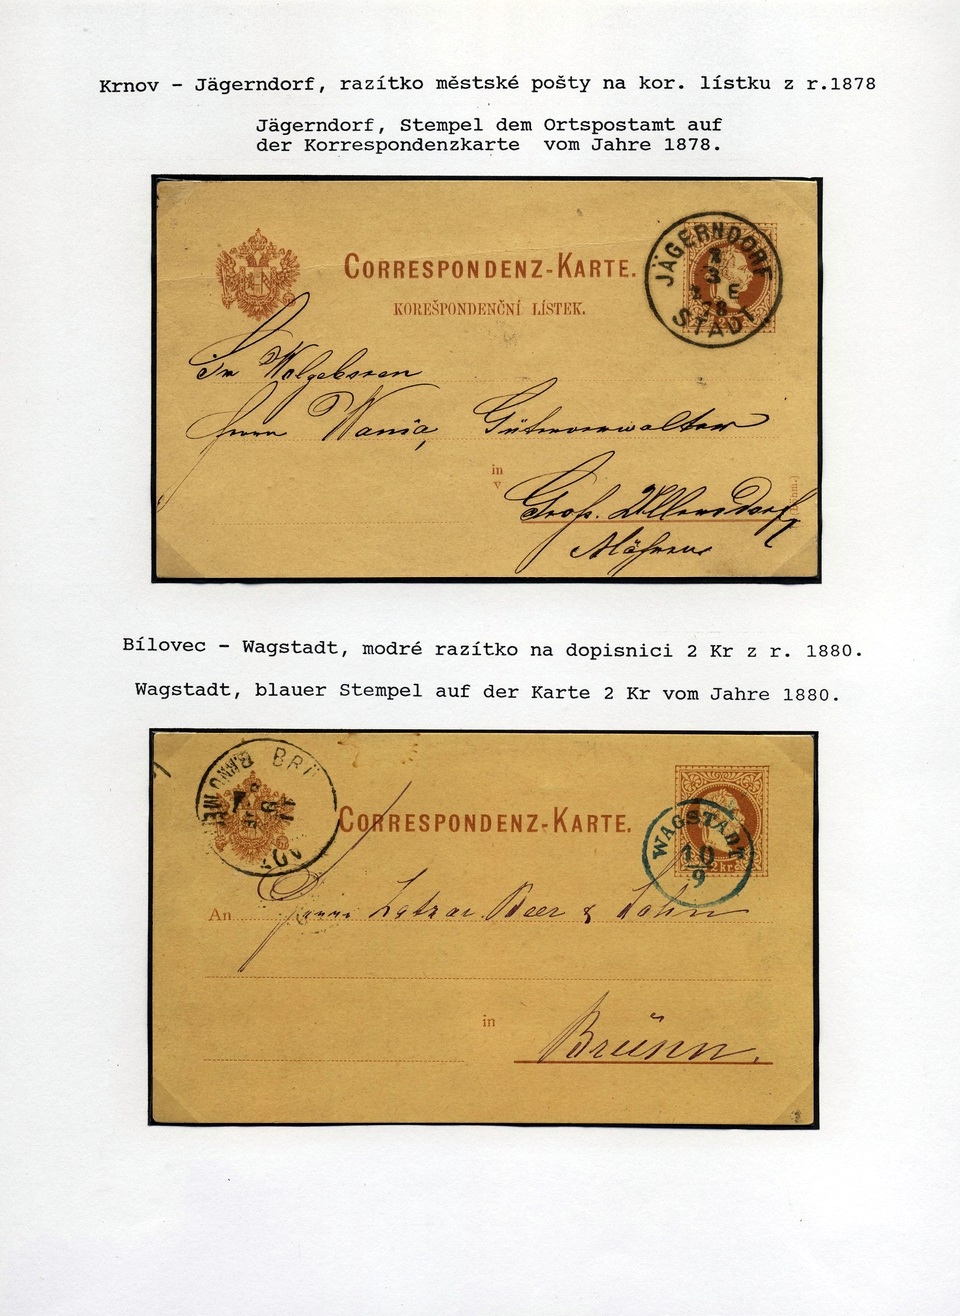 Krnov - Jägerndorf, razítko městské pošty na kor. lístku z r.1878
Jägerndorf, Stempel dem Ortspostamt auf
der Korrespondenzkarte vom Jahre 1878.
CORRESPONDENZ-KARTE.
KOREŠPONDENČNÍ LÍSTEK.
JÄGERNDORF
3
E
78
STADT
Sr Wolgeboren
Herrn Wania, Güterverwalter
in
v
Groß. Ullersdorf
Mähren
(Böhm.)
Bílovec - Wagstadt, modré razítko na dopisnici 2 Kr z r. 1880.
Wagstadt, blauer Stempel auf der Karte 2 Kr vom Jahre 1880.
BRNO MĚ
BRÜ
CORRESPONDENZ-KARTE.
WAGSTADT
10
9
2 kr.
An Herrn Beer & Sohn
in
Brünn.